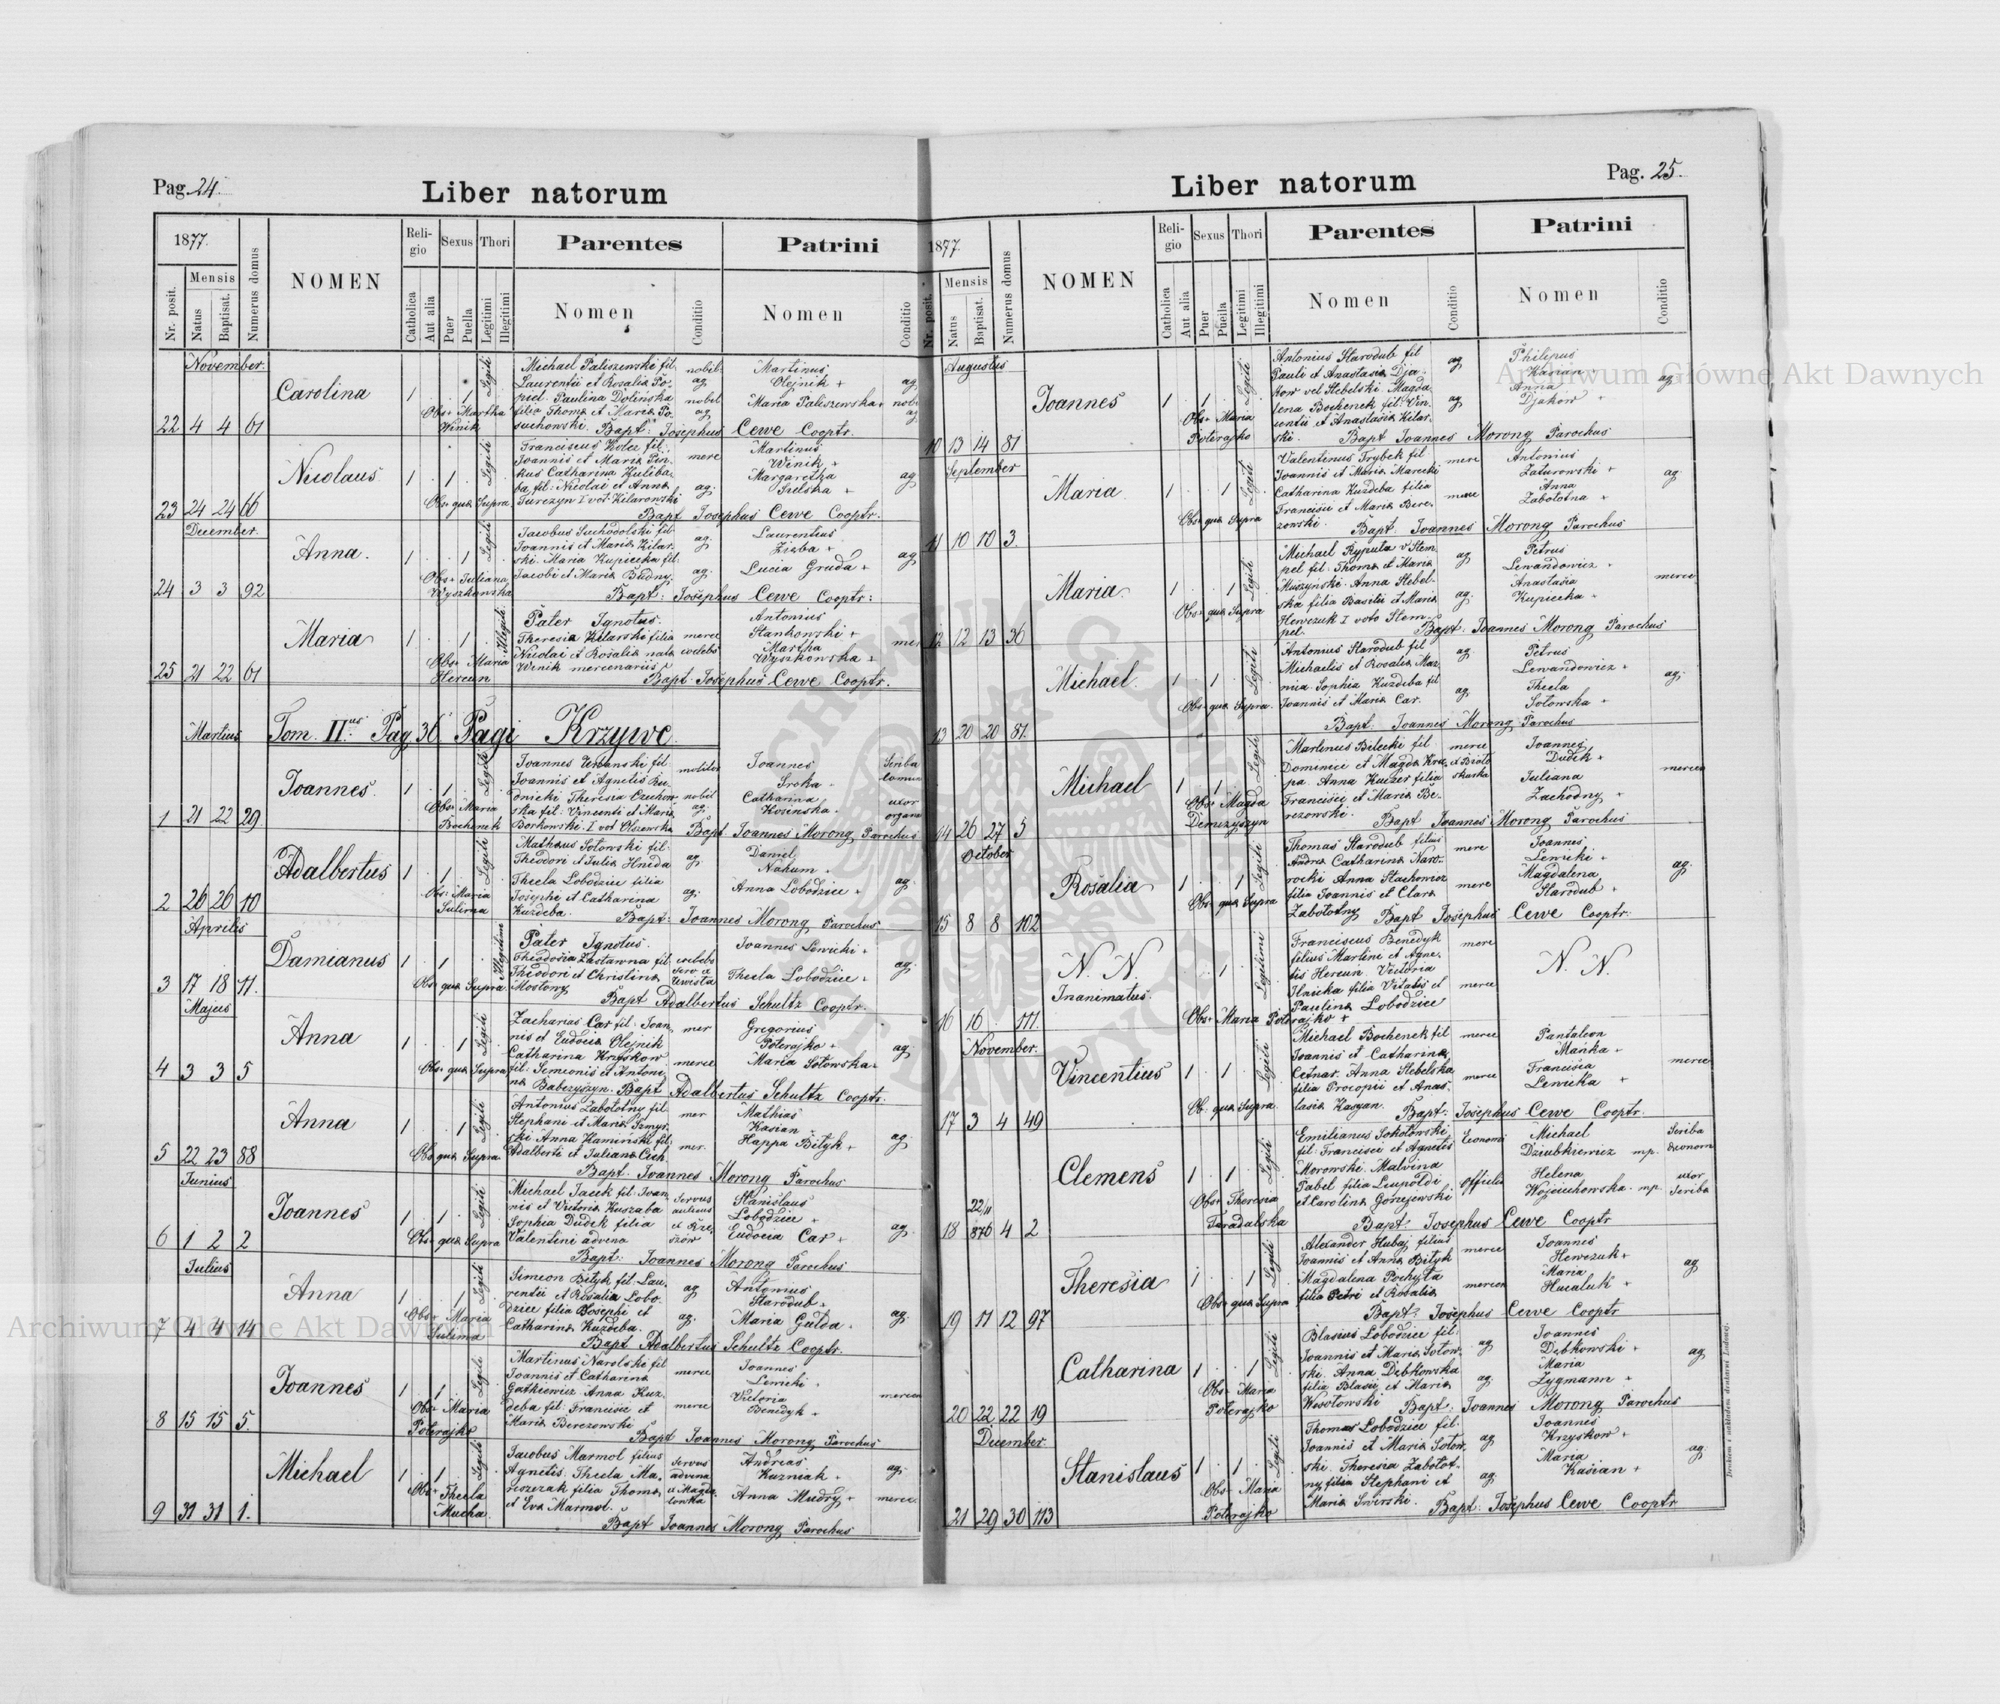 Pag. 24.
Liber natorum
1877.
Mensis
Nr. posit.
Natus
Baptisat.
Numerus domus
NOMEN
Religio
Catholica
Aut alia
Sexus
Puer
Puella
Thori
Legitimi
Illegitimi
Parentes
Nomen
Conditio
Patrini
Nomen
Conditio
November.
22 4 4 61
Carolina
1 . . 1 Legiti
Obs. Martha
Winik
Michael Paliszewski fil.
Laurentii et Rosalia Po-
piel. Paulina Dolinska
filia Thoma et Maria Po-
suchowski. Bapt: Josephus Cewe Cooptr.
nobil.
ag
nobil
ag.
Martinus
Olejnik +
Maria Paliszewska +
ag
nobi
23 24 24 66
Nicolaus
1 . 1 . Legiti
Obs. qua Supra
Franciscus Kotec fil.
Joannis et Maria Pin-
kus Catharina Kuliba-
ba fil: Nicolai et Anna
Turczyn I vot. Kilarowski
mere
ag.
Martinus
Winik +
Margaretha
Sielska +
ag
Bapt Josephus Cewe Cooptr.
December.
24 3 3 92
Anna.
1 . . 1 Legiti
Obs. Juliana
Wyszkowska
Jacobus Suchodolski fil.
Joannis et Maria Kilar-
ski. Maria Kupiecka fil.
Jacobi et Maria Budny.
ag.
ag.
Laurentius
Zieba +
Lucia Gruda +
ag
Bapt: Josephus Cewe Cooptr:
25 21 22 61
Maria
1 . . 1 Illegiti
Obs. Maria
Hercun
Pater Ignotus.
Theresia Kilarski filia
Nicolai et Rosalia nata
Winik mercenarii
merce
coelebs
Antonius
Stankowski +
Martha
Wyszkowska +
mer
Bapt. Josephus Cewe Cooptr.
Martius
Tom. IIus Pag 36 Pagi Krzywe
1 21 22 29
Joannes.
1 . 1 . Legiti
Obs. Maria
Bochenek
Joannes Urbanski fil.
Joannis et Agnetis Ru-
dnicki Theresia Czechow-
ska fil: Vincenti et Maria
Borkowski. I vot Olszewska
molitor
nobil
ag.
Joannes
Sroka .
Catharina
Kosinska .
Scriba
comun
uxor
organa
Bapt Joannes Morong Parochus
2 26 26 10
Adalbertus
1 . 1 . Legiti
Obs. Maria
Sulima
Matheus Sotowski fil:
Theodori et Julia Hnida
Thecla Lobodzice filia
Josephi et Catharina
Kuzdeba.
ag.
ag.
Daniel
Nahum .
Anna Lobodzice +
ag.
Bapt: Joannes Morong Parochus
Aprilis
3 17 18 11.
Damianus
1 . 1 . Illegitimi
Obs. qua Supra.
Pater Ignotus.
Theodosia Zastawna fil.
Theodori et Christina
Mostowy
coelebs
Joannes Lewicki +
Thecla Lobodzice .
ag.
Bapt Adalbertus Schultz Cooptr.
Majus
4 3 3 5
Anna
1 . . 1 Legiti
Obs. qua Supra
Zacharias Car fil: Joan-
nis et Eudocia Olejnik
Catharina Krzyskow
fil: Simeonis et Antoni-
na Babczyszyn. Bapt Adalbertus Schultz Cooptr.
mer
merce
Gregorius
Poterajko +
Maria Sotowska +
ag.
5 22 23 88
Anna
1 . . 1 Legiti
Obs. qua Supra.
Antonius Zabototny fil.
Stephani et Maria Szmyr-
ski Anna Kaminski fil:
Adalberti et Juliana Cich
mer
mer.
Mathias
Kasian .
Happa Bityk +
ag.
Bapt: Joannes Morong Parochus
Junius
6 1 2 2
Joannes
1 . 1 . Legiti
Obs. qua Supra
Michael Jacek fil: Joan-
nis et Victoria Kuszaba
Sophia Dudek filia
Valentini advena
servus
aulicus
et Rze-
szow
Stanislaus
Lobodzice +
Eudocia Car +
ag.
Bapt: Joannes Morong Parochus
Julius
7 4 4 14
Anna
1 . . 1 Legiti
Obs. Maria
Sulima
Simeon Bityk fil: Lau-
rentii et Rosalia Lobo-
dzice filia Josephi et
Catharina Kuzdeba.
ag
ag.
Antonius
Starodub .
Maria Gulda .
ag.
Bapt Adalbertus Schultz Cooptr.
8 15 15 5.
Joannes
1 . 1 . Legiti
Obs. Maria
Poterajko
Martinus Narolski fil
Joannis et Catharina
Gatkiewicz. Anna Kuz-
deba fil: Francisci et
Maria Berezowski
merce
merce
Joannes
Lewicki .
Victoria
Benedyk +
mercen
Bapt Joannes Morong Parochus
9 31 31 1.
Michael
1 . 1 . Legiti
Obs. Thecla
Mucha.
Jacobus Marmol filius
Agnetis. Thecla Ma-
reszczak filia Thoma
et Eva Marmol.
servus
advena
Andreas
Kuzniak +
Anna Mudry +
ag.
merce.
Bapt Joannes Morong Parochus
Pag. 25.
Liber natorum
1877.
Mensis
Nr. posit.
Natus
Baptisat.
Numerus domus
NOMEN
Religio
Catholica
Aut alia
Sexus
Puer
Puella
Thori
Legitimi
Illegitimi
Parentes
Nomen
Conditio
Patrini
Nomen
Conditio
Augustus
10 13 14 81
Joannes
1 . 1 . Legiti
Obs. Maria
Poterajko
Antonius Starodub fil
Pauli et Anastasia Dja-
kow vel Stebelski. Magda-
lena Bochenek fil: Vin-
centii et Anastasia Kilar-
ski. Bapt Joannes Morong Parochus
ag
ag
Philipus
Kasian +
Anna
Djakow +
ag
September
11 10 10 3.
Maria.
1 . . 1 Legiti
Obs. qua Supra
Valentinus Trybek fil
Joannis et Maria Marecki
Catharina Kuzdeba filia
Francisci et Maria Bere-
zowski.
merc
merce
Antonius
Zaturowski +
Anna
Zabototna +
ag
Bapt Joannes Morong Parochus
12 12 13 36
Maria.
1 . . 1 Legiti
Obs. qua Supra
Michael Ryputa v Stem-
pel fil: Thoma et Maria
Muszynski. Anna Stebel-
ska filia Basilii et Maria
Hewczuk I voto Stem-
pel.
ag
ag.
Petrus
Lewandowicz +
Anastasia
Kupiecka +
merce
Bapt: Joannes Morong Parochus
13 20 20 87.
Michael.
1 . 1 . Legiti
Obs. qua Supra.
Antonius Starodub fil
Michaelis et Rosalia Maz-
nica. Sophia Kuzdeba fil
Joannis et Maria Car.
ag.
ag.
Petrus
Lewandowicz +
Thecla
Sotowska +
ag.
Bapt: Joannes Morong Parochus
14 26 27 5
Michael
1 . 1 . Legiti
Obs. Magda
Demczyszyn
Martinus Bilecki fil
Dominici et Magda Kru-
pa Anna Kuczer filia
Francisci et Maria Be-
rezowski.
merce
Joannes
Dudek +
Juliana
Zachodny +
mercen
Bapt: Joannes Morong Parochus
October
15 8 8 102
Rosalia
1 . . 1 Legiti
Obs. qua Supra
Thomas Starodub filius
Andrea Catharina Naro-
rocki Anna Stachowicz
filia Joannis et Clara
Zabototny
merc
merc
Joannes
Lewicki +
Magdalena
Starodub +
ag.
Bapt Josephus Cewe Cooptr.
16 16 . 111.
N. N.
Inanimatus.
1 . Legitimi
Obs. Maria Poterajko +
Franciscus Benedyk
filius Martini et Agne-
tis Hercun Victoria
Ilnicka filia Vitalis et
Paulina Lobodzice
merc
merce
N. N.
November.
17 3 4 49
Vincentius
1 . 1 . Legiti
Ob. qua Supra
Michael Bochenek fil
Joannis et Catharina
Cetnar. Anna Stebelska
filia Procopii et Anas-
tasia Kasyan.
merce
merce
Pantaleon
Manka +
Francisca
Lewicka +
merce
Bapt: Josephus Cewe Cooptr.
22/11
18 876 4 2
Clemens
1 . 1 . Legiti
Obs. Theresia
Taradalska
Emilianus Sokotowski
fil: Francisci et Agnetis
Morowski. Malvina
Pabel filia Leupoldi
et Carolina Gorzejewski
Economi
officia
Michael
Dziubkiewicz mp.
Helena
Wojciechowska. mp.
Scriba
oeconom
uxor
Scriba
Bapt: Josephus Cewe Cooptr
19 11 12 97
Theresia
1 . . 1 Legiti
Obs. qua Supra
Alexander Hubaj filius
Joannis et Anna Bityk
Magdalena Pochyta
filia Petri et Rosalia
merce
mercen
Joannes
Hewczuk +
Maria
Hucaluk +
ag
Bapt: Josephus Cewe Cooptr
20 22 22 19
Catharina
1 . . 1 Legiti
Obs. Maria
Poterajko
Blasius Lobodzice fil:
Joannis et Maria Sotow-
ski. Anna Debkowska
filia Blasii et Maria
Wesotowski
ag
ag.
Joannes
Debkowski +
Maria
Zygmann +
ag
Bapt: Joannes Morong Parochus
December
21 29 30 113
Stanislaus
1 . 1 . Legiti
Obs. Maria
Poterajko
Thomas Lobodzice fil:
Joannis et Maria Sotow-
ski. Theresia Zabotot-
ny filia Stephani et
Maria Swirski.
ag
ag.
Joannes
Krzyskow +
Maria
Kasian +
ag.
Bapt: Josephus Cewe Cooptr
Archiwum Główne Akt Dawnych
Archiwum Główne Akt Dawnych
ARCHIWUM GŁÓWNE AKT DAWNYCH